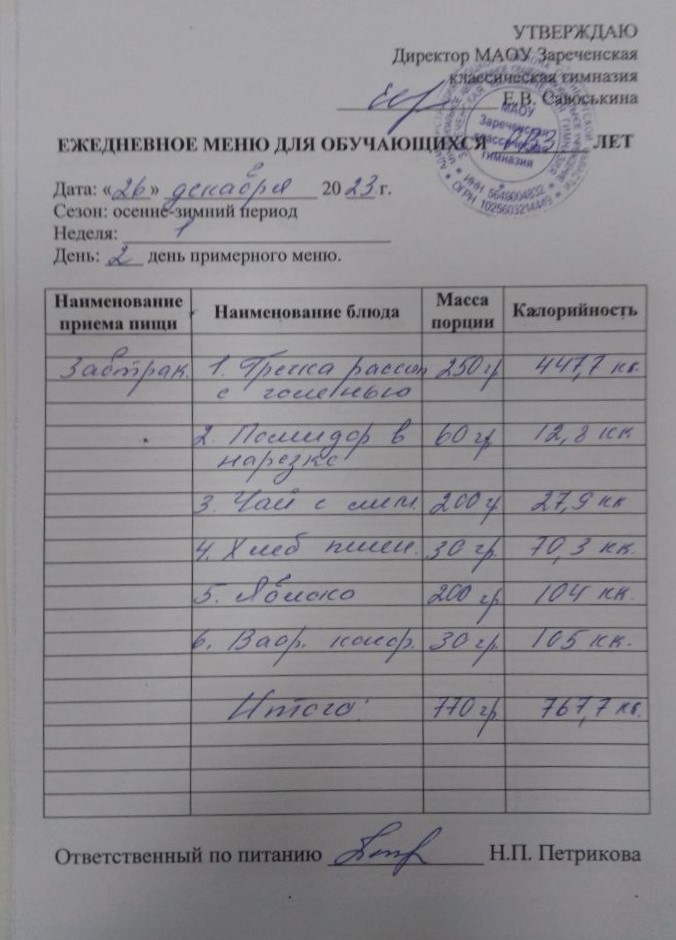 УТВЕРЖДАЮ
Директор МАОУ Зареченская
классическая гимназия
Е.В. Савоськина
МАОУ
Зареченская
классическая
гимназия
ИНН 5649004832 * ОГРН 1025603214449
ЕЖЕДНЕВНОЕ МЕНЮ ДЛЯ ОБУЧАЮЩИХСЯ ЛЕТ
Дата: «26» декабря 2023 г.
Сезон: осенне-зимний период
Неделя: 1
День: 2 день примерного меню.
Наименование приема пищи Наименование блюда Масса порции Калорийность
Завтрак. 1. Гречка рассып 250 гр 447,7 кк.
с голенью
2. Помидор в 60 гр 12,8 кк
нарезке
3. Чай с лим. 200 гр 27,9 кк
4. Хлеб пшен. 30 гр. 70,3 кк.
5. Яблоко 200 гр. 104 кк.
6. Вафр. конф. 30 гр. 105 кк.
Итого: 770 гр 767,7 кк.
Ответственный по питанию Н.П. Петрикова